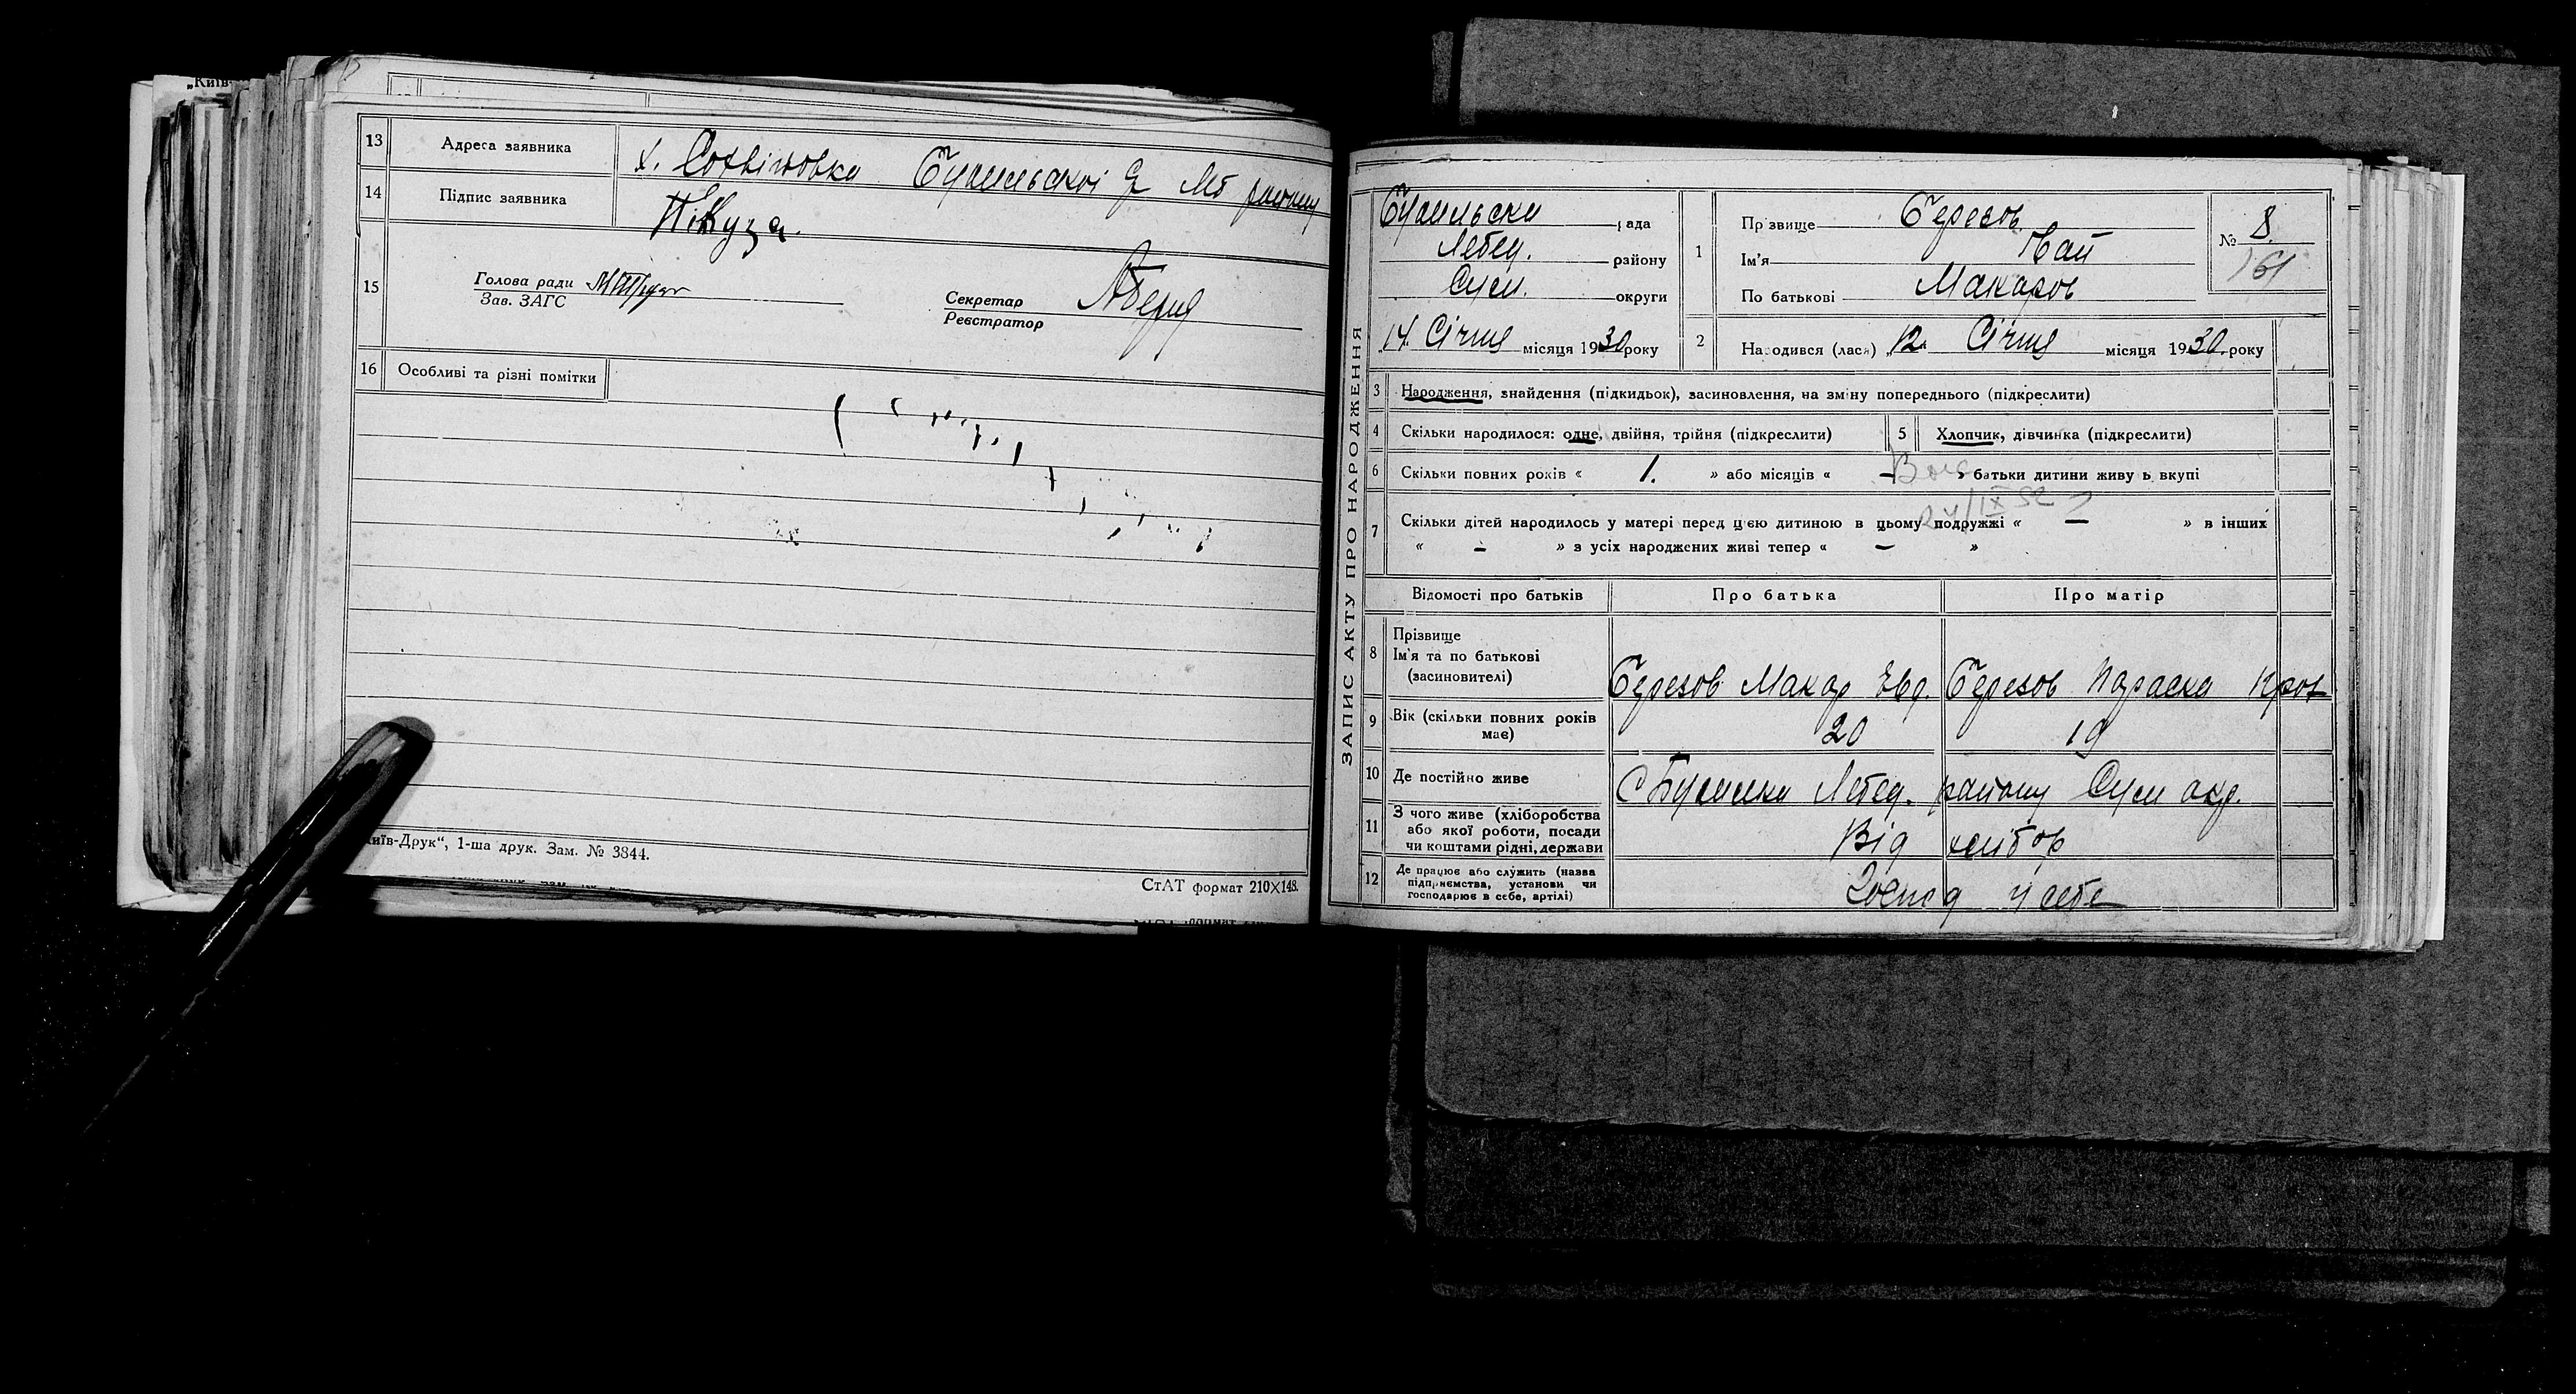 „Київ-
13 Адреса заявника
х. Бунильської Лб району
14 Підпис заявника
15 Голова ради
Зав. ЗАГС
Секретар
Реєстратор
16 Особливі та різні помітки
иїв-Друк“, 1-ша друк. Зам. № 3844.
СтАТ формат 210Х148.
ЗАПИС АКТУ ПРО НАРОДЖЕННЯ
рада
Лебед. району
Сум. округи
14 Січня місяця 1930 року
1 Прізвище Березов
Ім'я
По батькові Макаров
№ 8
161
2 Народився (лася) „12“ Січня місяця 1930 року
3 Народження, знайдення (підкидьок), засиновлення, на зміну попереднього (підкреслити)
4 Скільки народилося: одне, двійня, трійня (підкреслити)
5 Хлопчик, дівчинка (підкреслити)
6 Скільки повних років « 1. » або місяців « – » батьки дитини живуть вкупі
7 Скільки дітей народилось у матері перед цією дитиною в цьому подружжі « — » в інших
« – » з усіх народжених живі тепер « – »
Відомості про батьків Про батька Про матір
8 Прізвище
Ім'я та по батькові
(засиновителі)
Березов Макар Евд. Березов Параска
9 Вік (скільки повних років
має)
20 19
10 Де постійно живе
с Лебед. району Сум окр.
11 З чого живе (хліборобства
або якої роботи, посади
чи коштами рідні, держави
Від хлібор
12 Де працює або служить (назва
підприємства, установи чи
господарює в себе, артілі)
Господ у себе